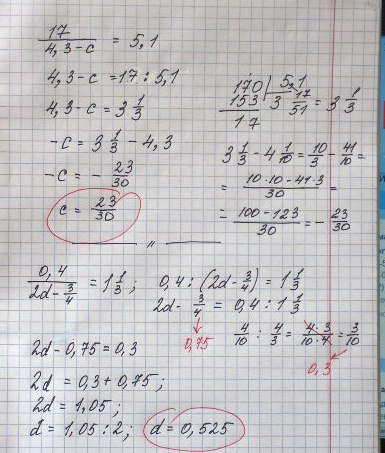 17 / (4,3 - c) = 5,1
4,3 - c = 17 : 5,1
4,3 - c = 3 1/3
-c = 3 1/3 - 4,3
-c = - 23/30
c = 23/30
170 | 5,1
153 3 17/51 = 3 1/3
17
3 1/3 - 4 1/10 = 10/3 - 41/10 =
= (10·10 - 41·3) / 30 =
= (100 - 123) / 30 = - 23/30
"
0,4 / (2d - 3/4) = 1 1/3; 0,4 : (2d - 3/4) = 1 1/3
2d - 3/4 = 0,4 : 1 1/3
0,75
4/10 : 4/3 = 4·3 / 10·4 = 3/10
0,3
2d - 0,75 = 0,3
2d = 0,3 + 0,75;
2d = 1,05;
d = 1,05 : 2; d = 0,525